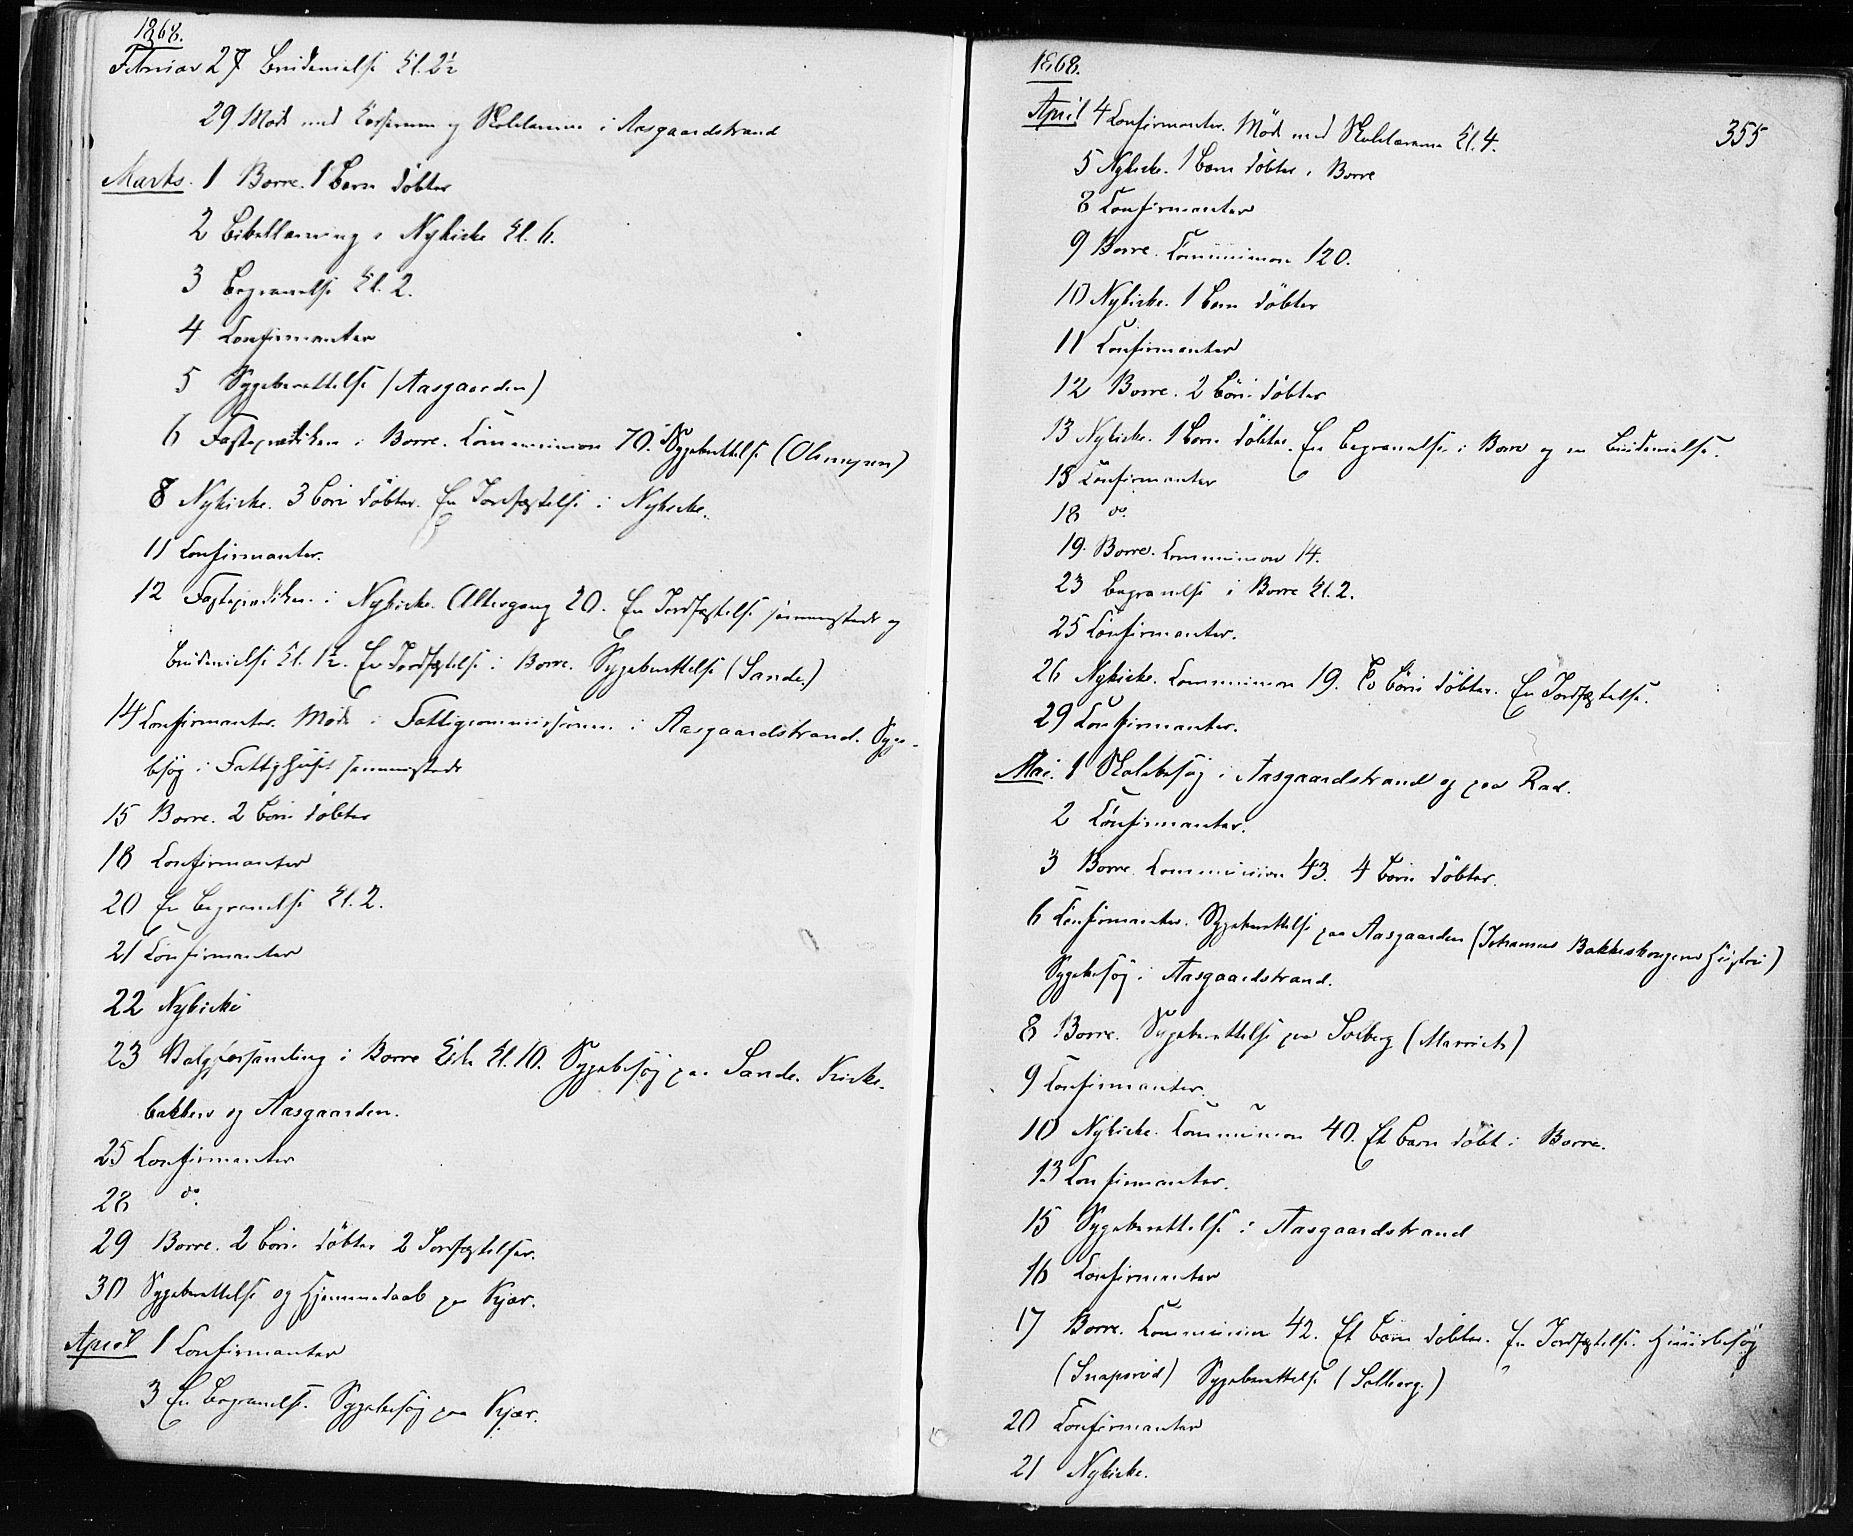 1868.
Februar 27 Brudevielse Kl. 2½
29 Møde med Formænd og Skolelærerne i Aasgaardstrand
Marts. 1 Borre. 1 Barn døbter
2 Bibellæsning i Nykirke Kl. 6.
3 Begravelse Kl. 2.
4 Confirmanter
5 Sygeberettelse (Aasgaarden)
6 Fasteprædiken i Borre. Communion 70. Sygeberettelse (Olsmyren)
8 Nykirke. 3 Børn døbter. En Jordfæstelse i Nykirke.
11 Confirmanter.
12 Fasteprædiken i Nykirke. Altergang 20. En Jordfæstelse sammesteds og
Brudevielse Kl. 1½. En Jordfæstelse i Borre. Sygeberettelse (Sande.)
14 Confirmanter. Møde i Fattigcommissionen i Aasgaardstrand. Syge-
besøg i Fattighuset sammesteds
15 Borre. 2 Børn døbter
18 Confirmanter
20 En Begravelse Kl. 2.
21 Confirmanter
22 Nykirke
23 Valgforsamling i Borre Kirke Kl. 10. Sygebesøg paa Sande. Kirke-
bakken og Aasgaarden.
25 Confirmanter
28 do.
29 Borre. 2 Børn døbter 2 Jordfæstelser.
30 Sygeberettelse og Hjemmedaab paa Kjær.
April 1 Confirmanter
3 En Begravelse. Sygebesøg paa Kjær.
1868.
355
April 4 Confirmanter. Møde med Skolelærerne Kl. 4.
5 Nykirke. 1 Barn døbter i Borre
8 Confirmanter
9 Borre. Communion 120.
10 Nykirke. 1 Barn døbter
11 Confirmanter
12 Borre. 2 Børn døbter
13 Nykirke. 1 Barn døbter. En Begravelse i Borre og en Brudevielse.
15 Confirmanter
18 do.
19. Borre. Communion 14.
23 Begravelse i Borre Kl. 2.
25 Confirmanter.
26 Nykirke. Communion 19. To Børn døbter. En Jordfæstelse.
29 Confirmanter.
Mai. 1 Skolebesøg i Aasgaardstrand og paa Rød.
2 Confirmanter.
3 Borre. Communion 43. 4 Børn døbter.
6 Confirmanter. Sygeberettelse paa Aasgaarden (Johannes Bakkeskougens Hustru)
Sygebesøg i Aasgaardstrand.
8 Borre. Sygeberettelse paa Solberg
9 Confirmanter.
10 Nykirke. Communion 40. Et Barn døbt i Borre.
13 Confirmanter.
15 Sygeberettelse i Aasgaardstrand
16 Confirmanter
17 Borre. Communion 42. Et Barn døbter. En Jordfæstelse. Huusbesøg
(Snapsrød) Sygeberettelse (Solberg.)
20 Confirmanter
21 Nykirke.